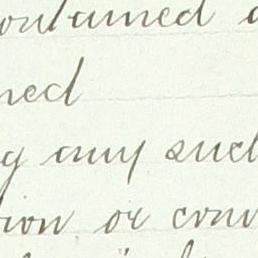 contained
ned
g any such
tion or conv